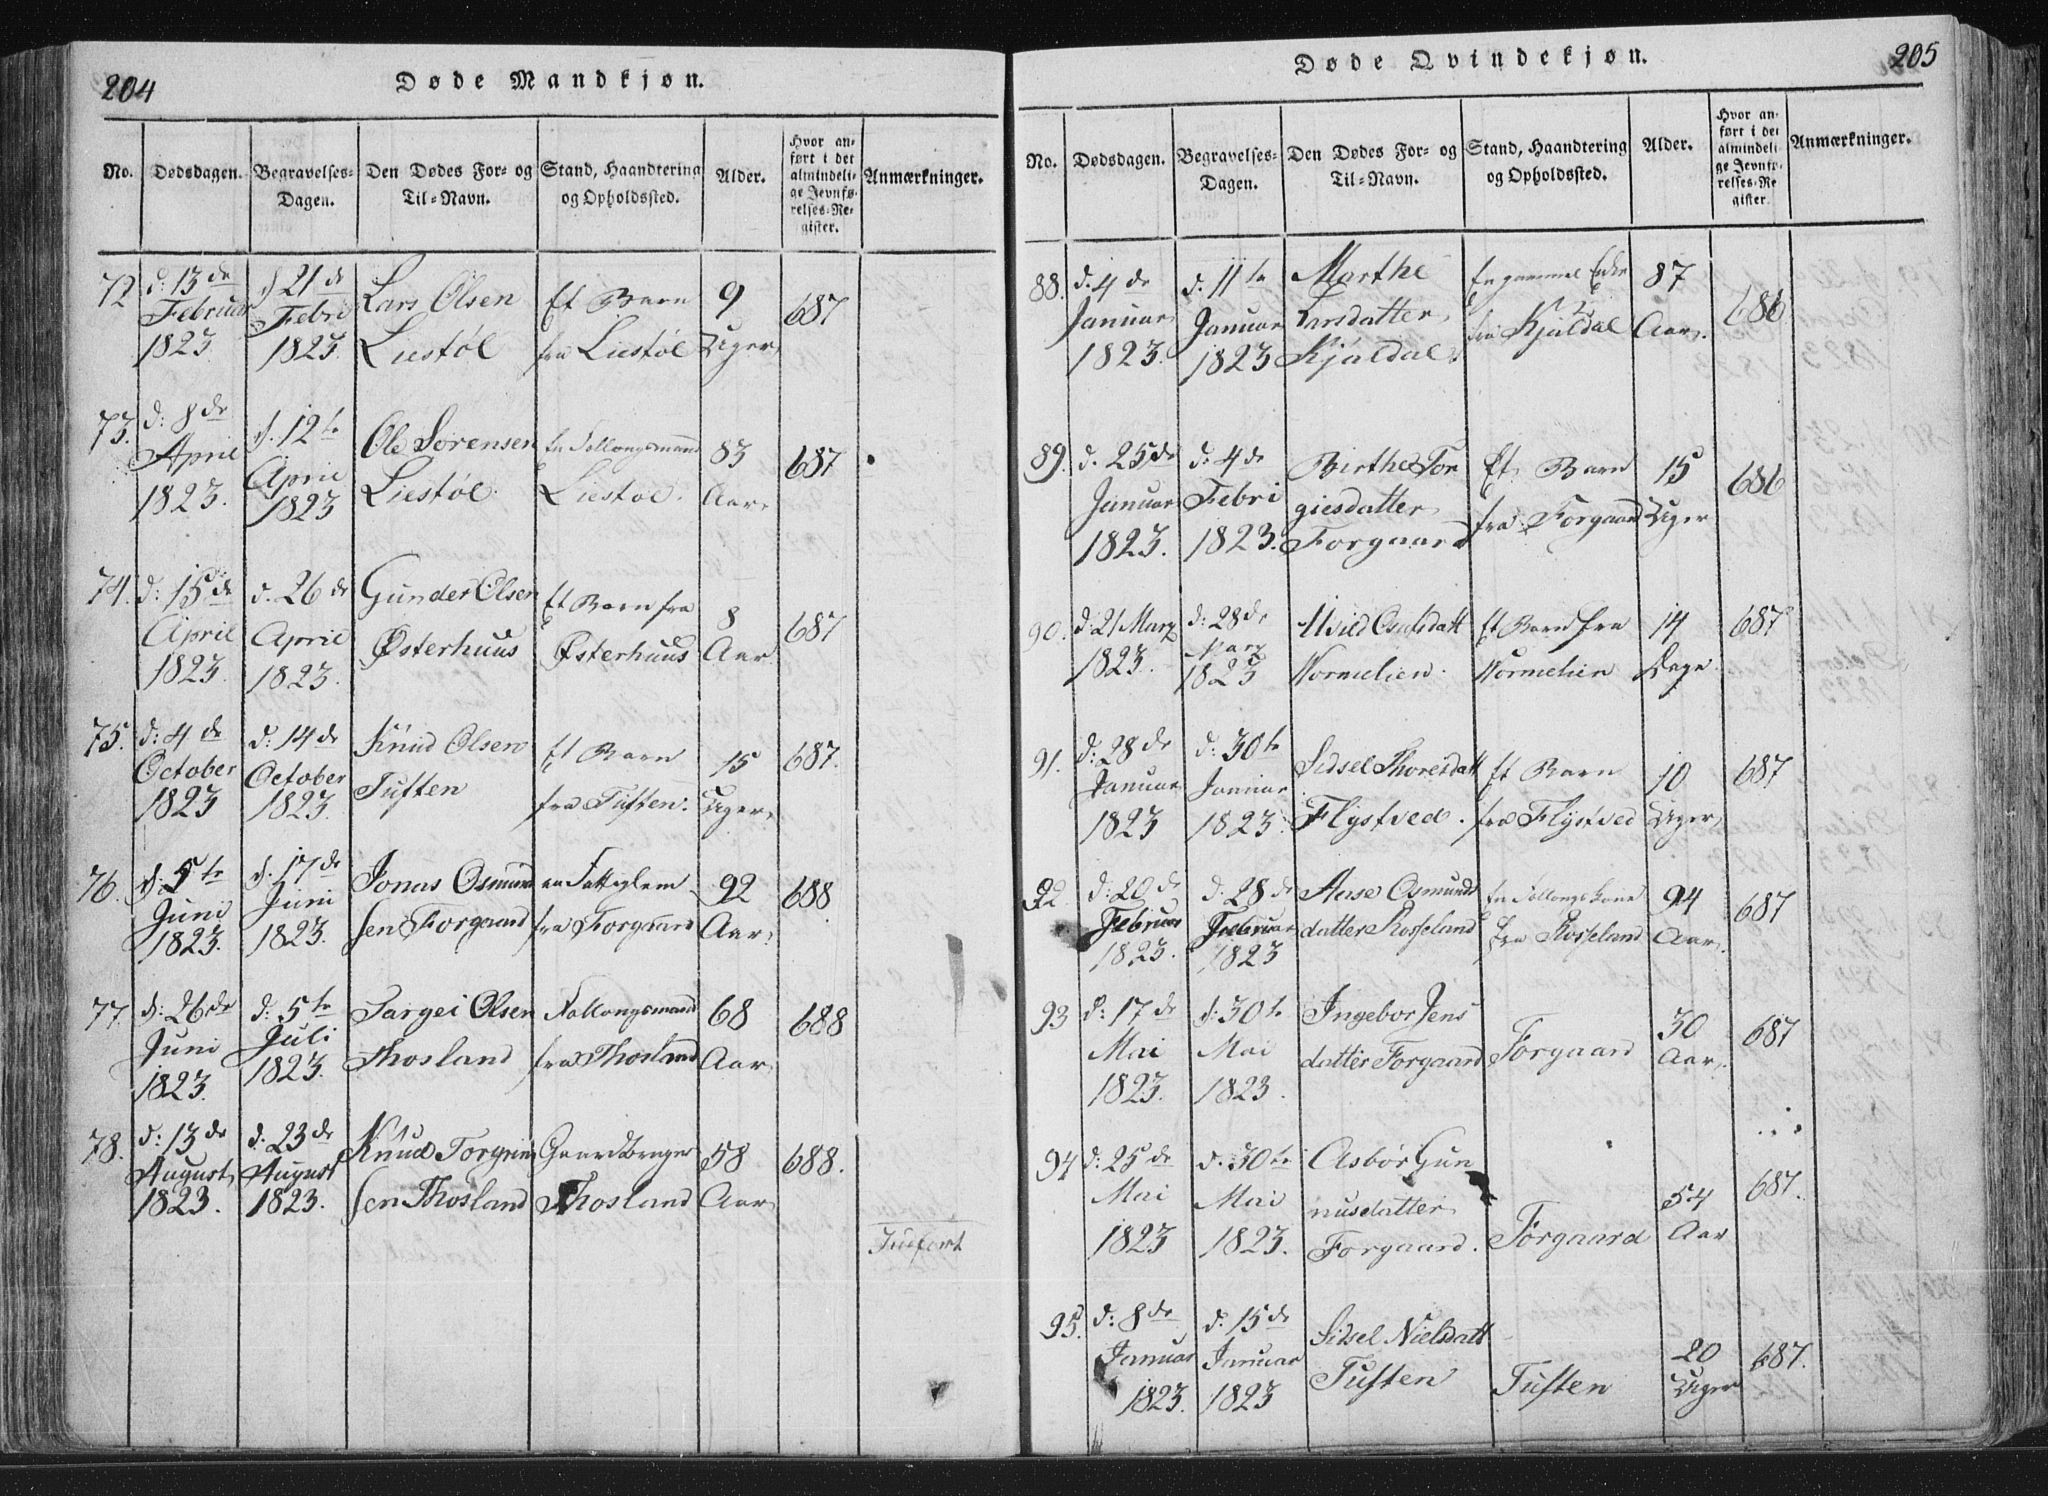 204
Døde Mandkjøn.
No. Dødsdagen. Begravelses-Dagen. Den Dødes For- og Til-Navn. Stand, Haandtering og Opholdssted. Alder. Hvor anført i det almindelige Jevnførelses-Register. Anmærkninger.
72 d: 13de d 21de Lars Olsen Et Barn 9 687
Februar Febri Liestøl fra Liestøl Uger
1823 1823.
73. d: 8de d. 12te Ole Sørensen En Follougsmand 83 687
April April Liestøl. Liestøl. Aar
1823. 1823
74. d: 15de d. 26de Gunder Olsen Et Barn fra 8 687
April April Østerhuus Østerhuus Aar
1823. 1823.
75. d: 4de d: 14de Knud Olsen Et Barn 15 687.
October October Tuften fra Tuften. Uger
1823 1823.
76. d. 5te d. 17de Jonas Osmund en Fattiglem 92 688
Juni Juni sen Forgaard fra Forgaard Aar.
1823. 1823.
77 d: 26de d: 5te Targei Olsen Follougsmand 68 688
Juni Juli Thosland fra Thosland Aar
1823. 1823.
78. d: 13de d. 23de Knud Torgrim Gaardbruger 58 688.
August August sen Thosland Thosland Aar
1823. 1823.
205
Døde Qvindekjøn.
No. Dødsdagen. Begravelses-Dagen. Den Dødes For- og Til-Navn. Stand, Haandtering og Opholdssted. Alder. Hvor anført i det almindelige Jevnførelses-Register. Anmærkninger.
88. d. 4de d. 11te Marthe En gammel Enke 87 686
Januar Januar Larsdatter fra Kjøldal Aar.
1823. 1823 Kjøldal.
89. d. 25de d: 4de Birthe Tor Et Barn 15 686
Januar Febri giesdatter fra Forgaard Uger
1823. 1823. Forgaard
90. d: 21 Marz d: 28de Osulfsdatt Et Barn fra 14 687
1823. Marz Vormelien. Vormelien Dage
1823
91. d: 28de d: 30te Sidsel Thoresdatt Et Barn 10 687
Januar Januar Flystved. fra Flystved Uger
1823 1823.
92. d: 20de d. 28de Anse Osmunds En Follougskone 94 687
Februar Februar datter Rosseland fra Rosseland Aar.
1823. 1823
93 d: 17de d: 30te Ingebor Jens 30 687
Mai Mai datter Forgaard Forgaard Aar.
1823. 1823.
94 d: 25de d. 30te Asbør Gun 54 687.
Mai Mai nusdatter Forgaard Aar
1823 1823. Forgaard.
95. d: 8de d: 15de Sidsel Nielsdatt 20 687.
Januar Januar Tuften Tuften Uger
1823. 1823